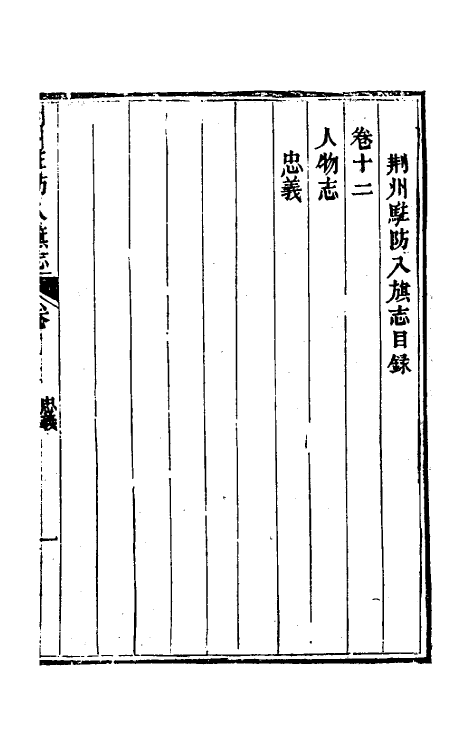 荆州駐防八旗志目録
卷十二
人物志
忠義
駐防八旗志
卷
忠義
一